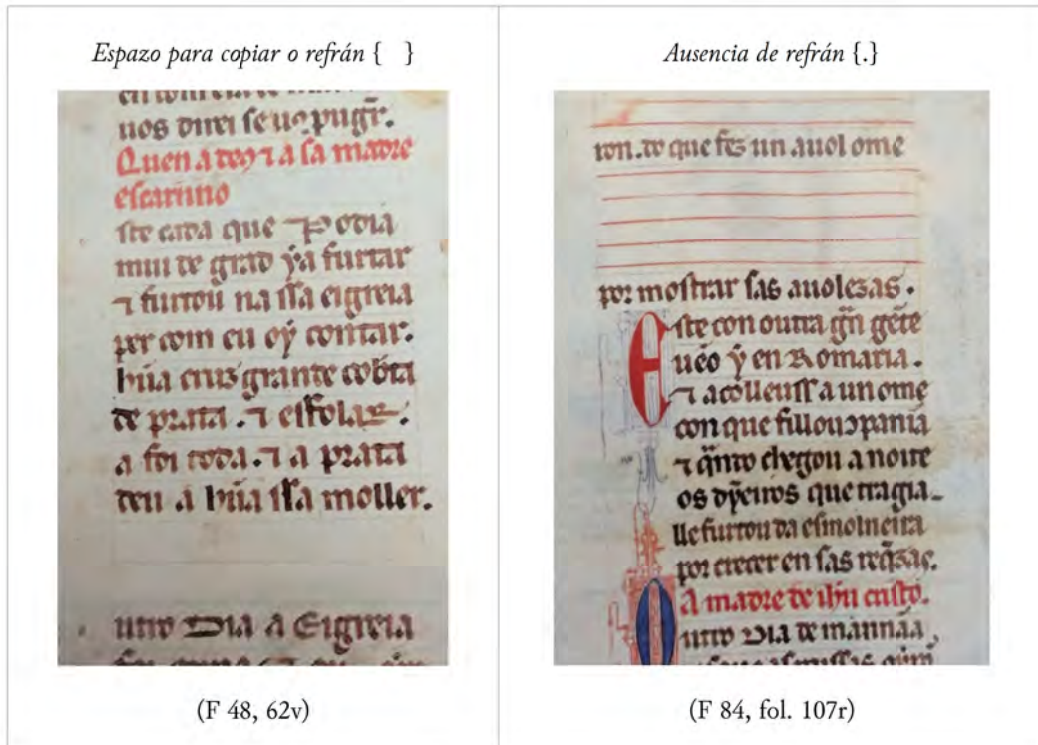 Espazo para copiar o refrán { }
uos direi se uꝯ pugr̄.
Quen a deꝯ ⁊ a sa madre
escarnno
ste cada que Podia
mui de grad ẏa furtar
⁊ furtou na ssa eigreia
per com eu oẏ contar.
hũa cruz grande cob̃ta
de prata . ⁊ esfolar .
a foi toda . ⁊ a prata
deu a hũa ssa moller.
utro Dia a Eigreia
(F 48, 62v)
Ausencia de refrán {.}
ton . do que fez un auol ome
por mostrar sas auolezas .
Este con outra gñ gẽte
uẽo ẏ en Romaria .
⁊ acolleuss a un ome
con que fillou ↄpania
⁊ q̃nto chegou a noite
os dỹeiros que tragia
lle furtou da esmolneira
por crecer en sas req̃zas.
A madre de ihũ cristo.
Outro Dia de mannãa,
(F 84, fol. 107r)